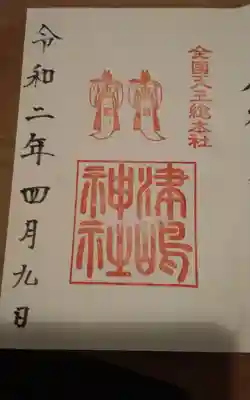 全國天王総本社
津嶋
神社
令和二年四月九日